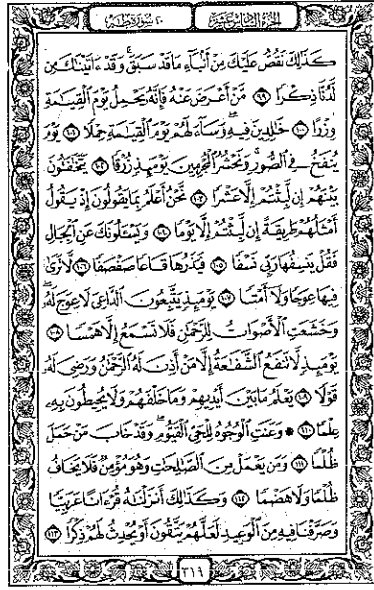 الجزء السادس عشر ٢٠ سورة طه
كَذَٰلِكَ نَقُصُّ عَلَيْكَ مِنْ أَنۢبَآءِ مَا قَدْ سَبَقَ ۚ وَقَدْ ءَاتَيْنَٰكَ مِن
لَّدُنَّا ذِكْرًا ﴿٩٩﴾ مَّنْ أَعْرَضَ عَنْهُ فَإِنَّهُۥ يَحْمِلُ يَوْمَ ٱلْقِيَٰمَةِ
وِزْرًا ﴿١٠٠﴾ خَٰلِدِينَ فِيهِ ۖ وَسَآءَ لَهُمْ يَوْمَ ٱلْقِيَٰمَةِ حِمْلًا ﴿١٠١﴾ يَوْمَ
يُنفَخُ فِى ٱلصُّورِ ۚ وَنَحْشُرُ ٱلْمُجْرِمِينَ يَوْمَئِذٍ زُرْقًا ﴿١٠٢﴾ يَتَخَٰفَتُونَ
بَيْنَهُمْ إِن لَّبِثْتُمْ إِلَّا عَشْرًا ﴿١٠٣﴾ نَّحْنُ أَعْلَمُ بِمَا يَقُولُونَ إِذْ يَقُولُ
أَمْثَلُهُمْ طَرِيقَةً إِن لَّبِثْتُمْ إِلَّا يَوْمًا ﴿١٠٤﴾ وَيَسْـَٔلُونَكَ عَنِ ٱلْجِبَالِ
فَقُلْ يَنسِفُهَا رَبِّى نَسْفًا ﴿١٠٥﴾ فَيَذَرُهَا قَاعًا صَفْصَفًا ﴿١٠٦﴾ لَّا تَرَىٰ
فِيهَا عِوَجًا وَلَآ أَمْتًا ﴿١٠٧﴾ يَوْمَئِذٍ يَتَّبِعُونَ ٱلدَّاعِىَ لَا عِوَجَ لَهُۥ ۖ
وَخَشَعَتِ ٱلْأَصْوَاتُ لِلرَّحْمَٰنِ فَلَا تَسْمَعُ إِلَّا هَمْسًا ﴿١٠٨﴾
يَوْمَئِذٍ لَّا تَنفَعُ ٱلشَّفَٰعَةُ إِلَّا مَنْ أَذِنَ لَهُ ٱلرَّحْمَٰنُ وَرَضِىَ لَهُۥ
قَوْلًا ﴿١٠٩﴾ يَعْلَمُ مَا بَيْنَ أَيْدِيهِمْ وَمَا خَلْفَهُمْ وَلَا يُحِيطُونَ بِهِۦ
عِلْمًا ﴿١١٠﴾ ۞ وَعَنَتِ ٱلْوُجُوهُ لِلْحَىِّ ٱلْقَيُّومِ ۖ وَقَدْ خَابَ مَنْ حَمَلَ
ظُلْمًا ﴿١١١﴾ وَمَن يَعْمَلْ مِنَ ٱلصَّٰلِحَٰتِ وَهُوَ مُؤْمِنٌ فَلَا يَخَافُ
ظُلْمًا وَلَا هَضْمًا ﴿١١٢﴾ وَكَذَٰلِكَ أَنزَلْنَٰهُ قُرْءَانًا عَرَبِيًّا
وَصَرَّفْنَا فِيهِ مِنَ ٱلْوَعِيدِ لَعَلَّهُمْ يَتَّقُونَ أَوْ يُحْدِثُ لَهُمْ ذِكْرًا ﴿١١٣﴾
٣١٩